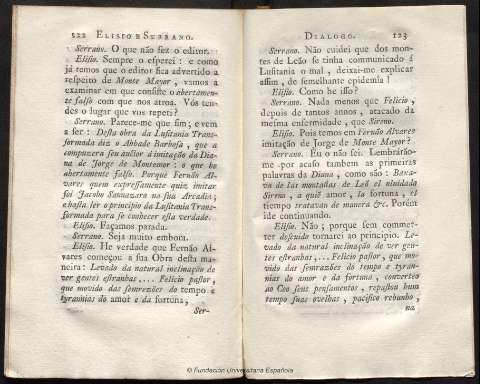 122 ELISIO E SERRANO.
Serrano. O que não fez o editor.
Elisio. Sempre o esperei: e como
já temos que o editor fica advertido a
respeito de Monte Mayor, vamos a
examinar em que consiste o abertamen-
te falso com que nos atroa. Vós ten-
des o lugar que vos repeti?
Serrano. Parece-me que sim; e vem
a ser: Desta obra da Lusitania Trans-
formada diz o Abbade Barbosa, que a
compuzera seu author á imitação da Dia-
na de Jorge de Montemor: o que he
abertamente falso. Porque Fernão Al-
vares quem expressamente quiz imitar
foi Jacobo Sannazaro na sua Arcadia;
e basta ler o principio da Lusitania Trans-
formada para se conhecer esta verdade.
Elisio. Façamos parada.
Serrano. Seja muito embora.
Elisio. He verdade que Fernão Al-
vares começou a sua Obra desta ma-
neira: Levado da natural inclinação de
ver gentes estranhas,... Felicio pastor,
que movido das semrazões do tempo e
tyrannias do amor e da fortuna,
Ser-
DIALOGO. 123
Serrano. Não cuidei que dos mon-
tes de Leão se tinha communicado á
Lusitania o mal, deixai-me explicar
assim, de semelhante epidemia!
Elisio. Como he isso?
Serrano. Nada menos que Felicio,
depois de tantos annos, atacado da
mesma enfermidade, que Sireno.
Elisio. Pois temos em Fernão Alvares
imitação de Jorge de Monte Mayor?
Serrano. Eu o não sei. Lembrárão-
me por acaso tambem as primeiras
palavras da Diana, como são: Baxa-
va de las montañas de Leõ el olvidado
Sireno, a quiẽ amor, la fortuna, el
tiempo tratavan de manera &c. Porém
ide continuando.
Elisio. Não; porque sem commet-
ter descuido tornarei ao principio. Le-
vado da natural inclinação de ver gen-
tes estranhas,... Felicio pastor, que mo-
vido das semrazões do tempo e tyran-
nias do amor e da fortuna, converteo
ao Ceo seus pensamentos, repastou hum
tempo suas ovelhas, pacifico rebanho,
na
© Fundación Universitaria Española